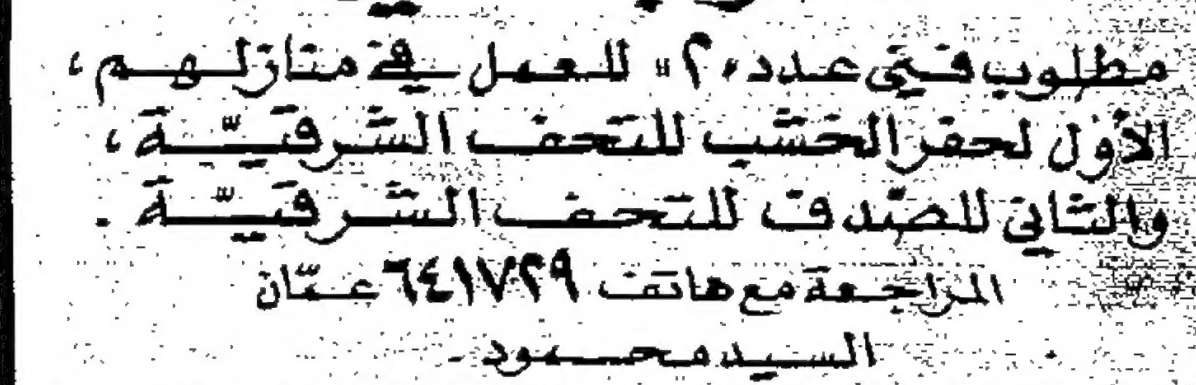 مطلوب فني عدد «٢» للعمل في منازلهم،
الأول لحفر الخشب للتحف الشرقيّة،
والثاني للصّدف للتحف الشرقيّة.
المراجعة مع هاتف ٦٤١٧٢٩ عمّان
السيد محمود.